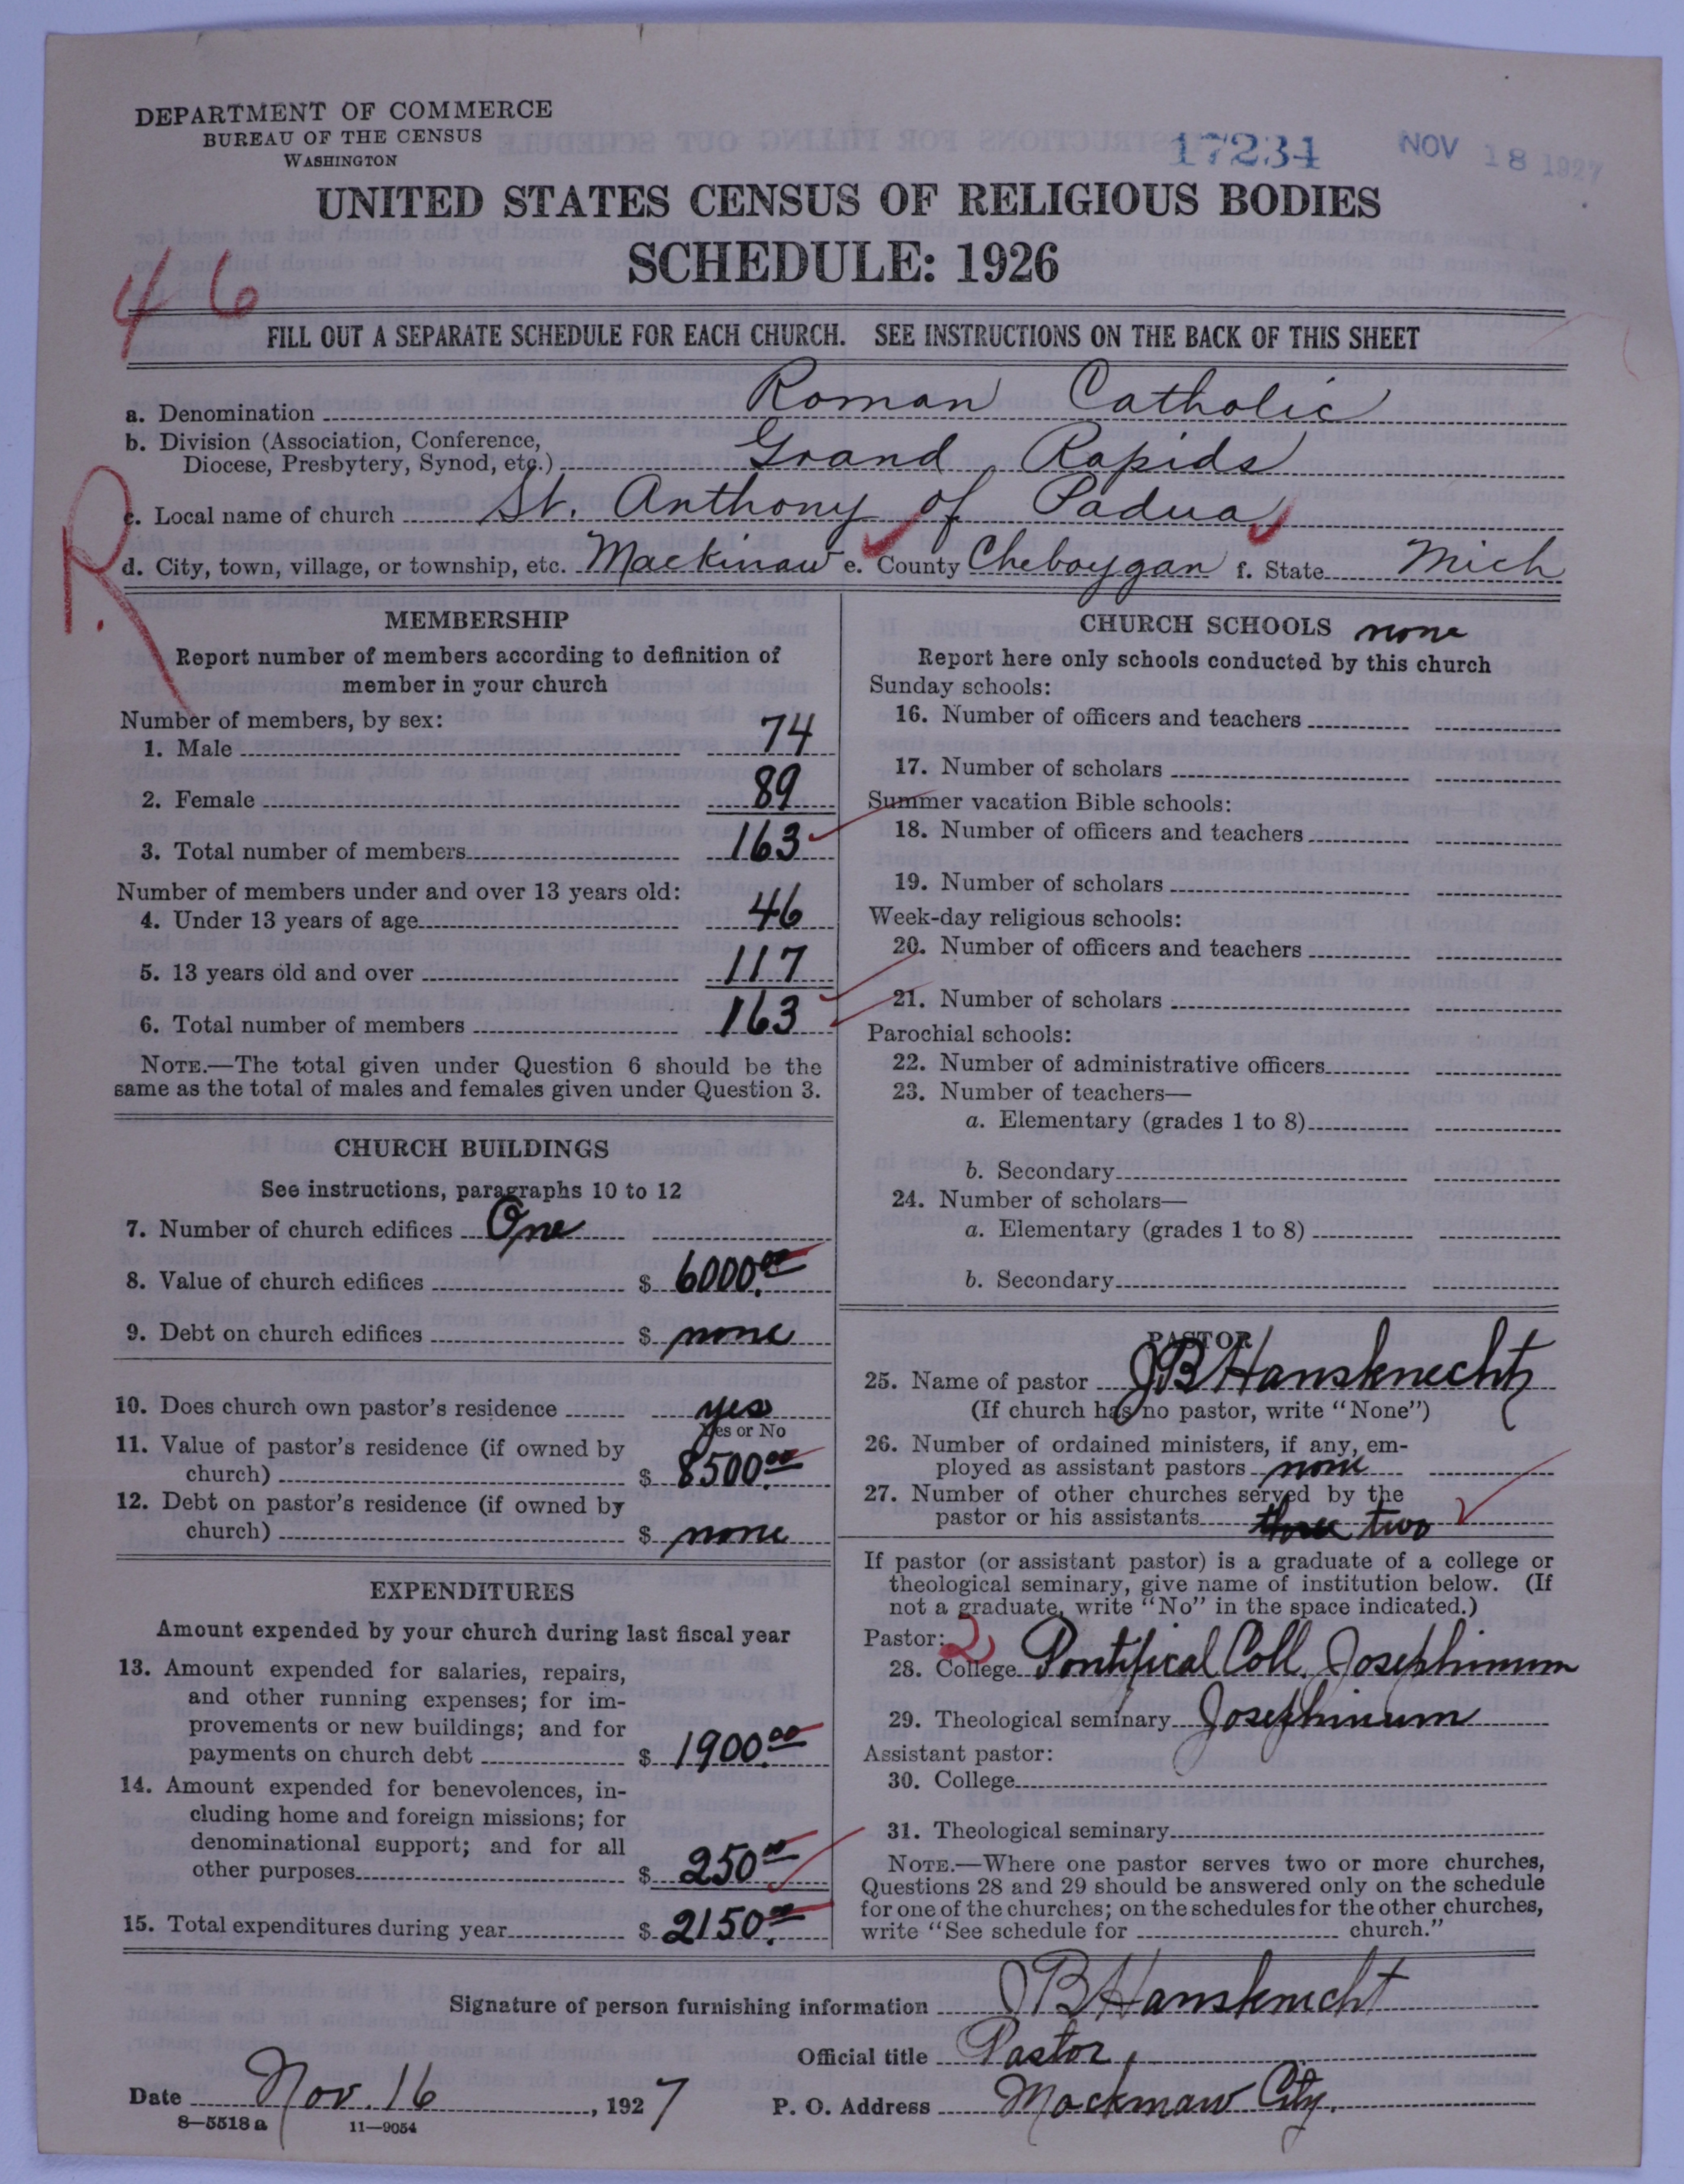 DEPARTMENT OF COMMERCE
BUREAU OF THE CENSUS
WASHINGTON
17234 NOV 18 1927
UNITED STATES CENSUS OF RELIGIOUS BODIES
SCHEDULE: 1926
46
FILL OUT A SEPARATE SCHEDULE FOR EACH CHURCH. SEE INSTRUCTIONS ON THE BACK OF THIS SHEET
a. Denomination Roman Catholic
b. Division (Association, Conference,
Diocese, Presbytery, Synod, etc.) Grand Rapids
c. Local name of church St. Anthony of Padua
R.
d. City, town, village, or township, etc. Mackinaw e. County Cheboygan f. State Mich
MEMBERSHIP
Report number of members according to definition of
member in your church
Number of members, by sex:
1. Male 74
2. Female 89
3. Total number of members 163
Number of members under and over 13 years old:
4. Under 13 years of age 46
5. 13 years old and over 117
6. Total number of members 163
NOTE.—The total given under Question 6 should be the
same as the total of males and females given under Question 3.
CHURCH BUILDINGS
See instructions, paragraphs 10 to 12
7. Number of church edifices One
8. Value of church edifices $ 6000.00
9. Debt on church edifices $ none
10. Does church own pastor's residence yes
Yes or No
11. Value of pastor's residence (if owned by
church) $ 8500.00
12. Debt on pastor's residence (if owned by
church) $ none
EXPENDITURES
Amount expended by your church during last fiscal year
13. Amount expended for salaries, repairs,
and other running expenses; for im-
provements or new buildings; and for
payments on church debt $ 1900.00
14. Amount expended for benevolences, in-
cluding home and foreign missions; for
denominational support; and for all
other purposes $ 250.00
15. Total expenditures during year $ 2150.00
CHURCH SCHOOLS none
Report here only schools conducted by this church
Sunday schools:
16. Number of officers and teachers
17. Number of scholars
Summer vacation Bible schools:
18. Number of officers and teachers
19. Number of scholars
Week-day religious schools:
20. Number of officers and teachers
21. Number of scholars
Parochial schools:
22. Number of administrative officers
23. Number of teachers—
a. Elementary (grades 1 to 8)
b. Secondary
24. Number of scholars—
a. Elementary (grades 1 to 8)
b. Secondary
PASTOR
25. Name of pastor J B Hansknecht
(If church has no pastor, write "None")
26. Number of ordained ministers, if any, em-
ployed as assistant pastors none
27. Number of other churches served by the
pastor or his assistants three two
If pastor (or assistant pastor) is a graduate of a college or
theological seminary, give name of institution below. (If
not a graduate, write "No" in the space indicated.)
Pastor: 2
28. College Pontifical Coll. Josephinum
29. Theological seminary Josephinum
Assistant pastor:
30. College
31. Theological seminary
NOTE.—Where one pastor serves two or more churches,
Questions 28 and 29 should be answered only on the schedule
for one of the churches; on the schedules for the other churches,
write "See schedule for church."
Signature of person furnishing information J B Hansknecht
Official title Pastor,
Date Nov. 16, 1927 P. O. Address Mackinaw City.
8—5518 a 11—9054